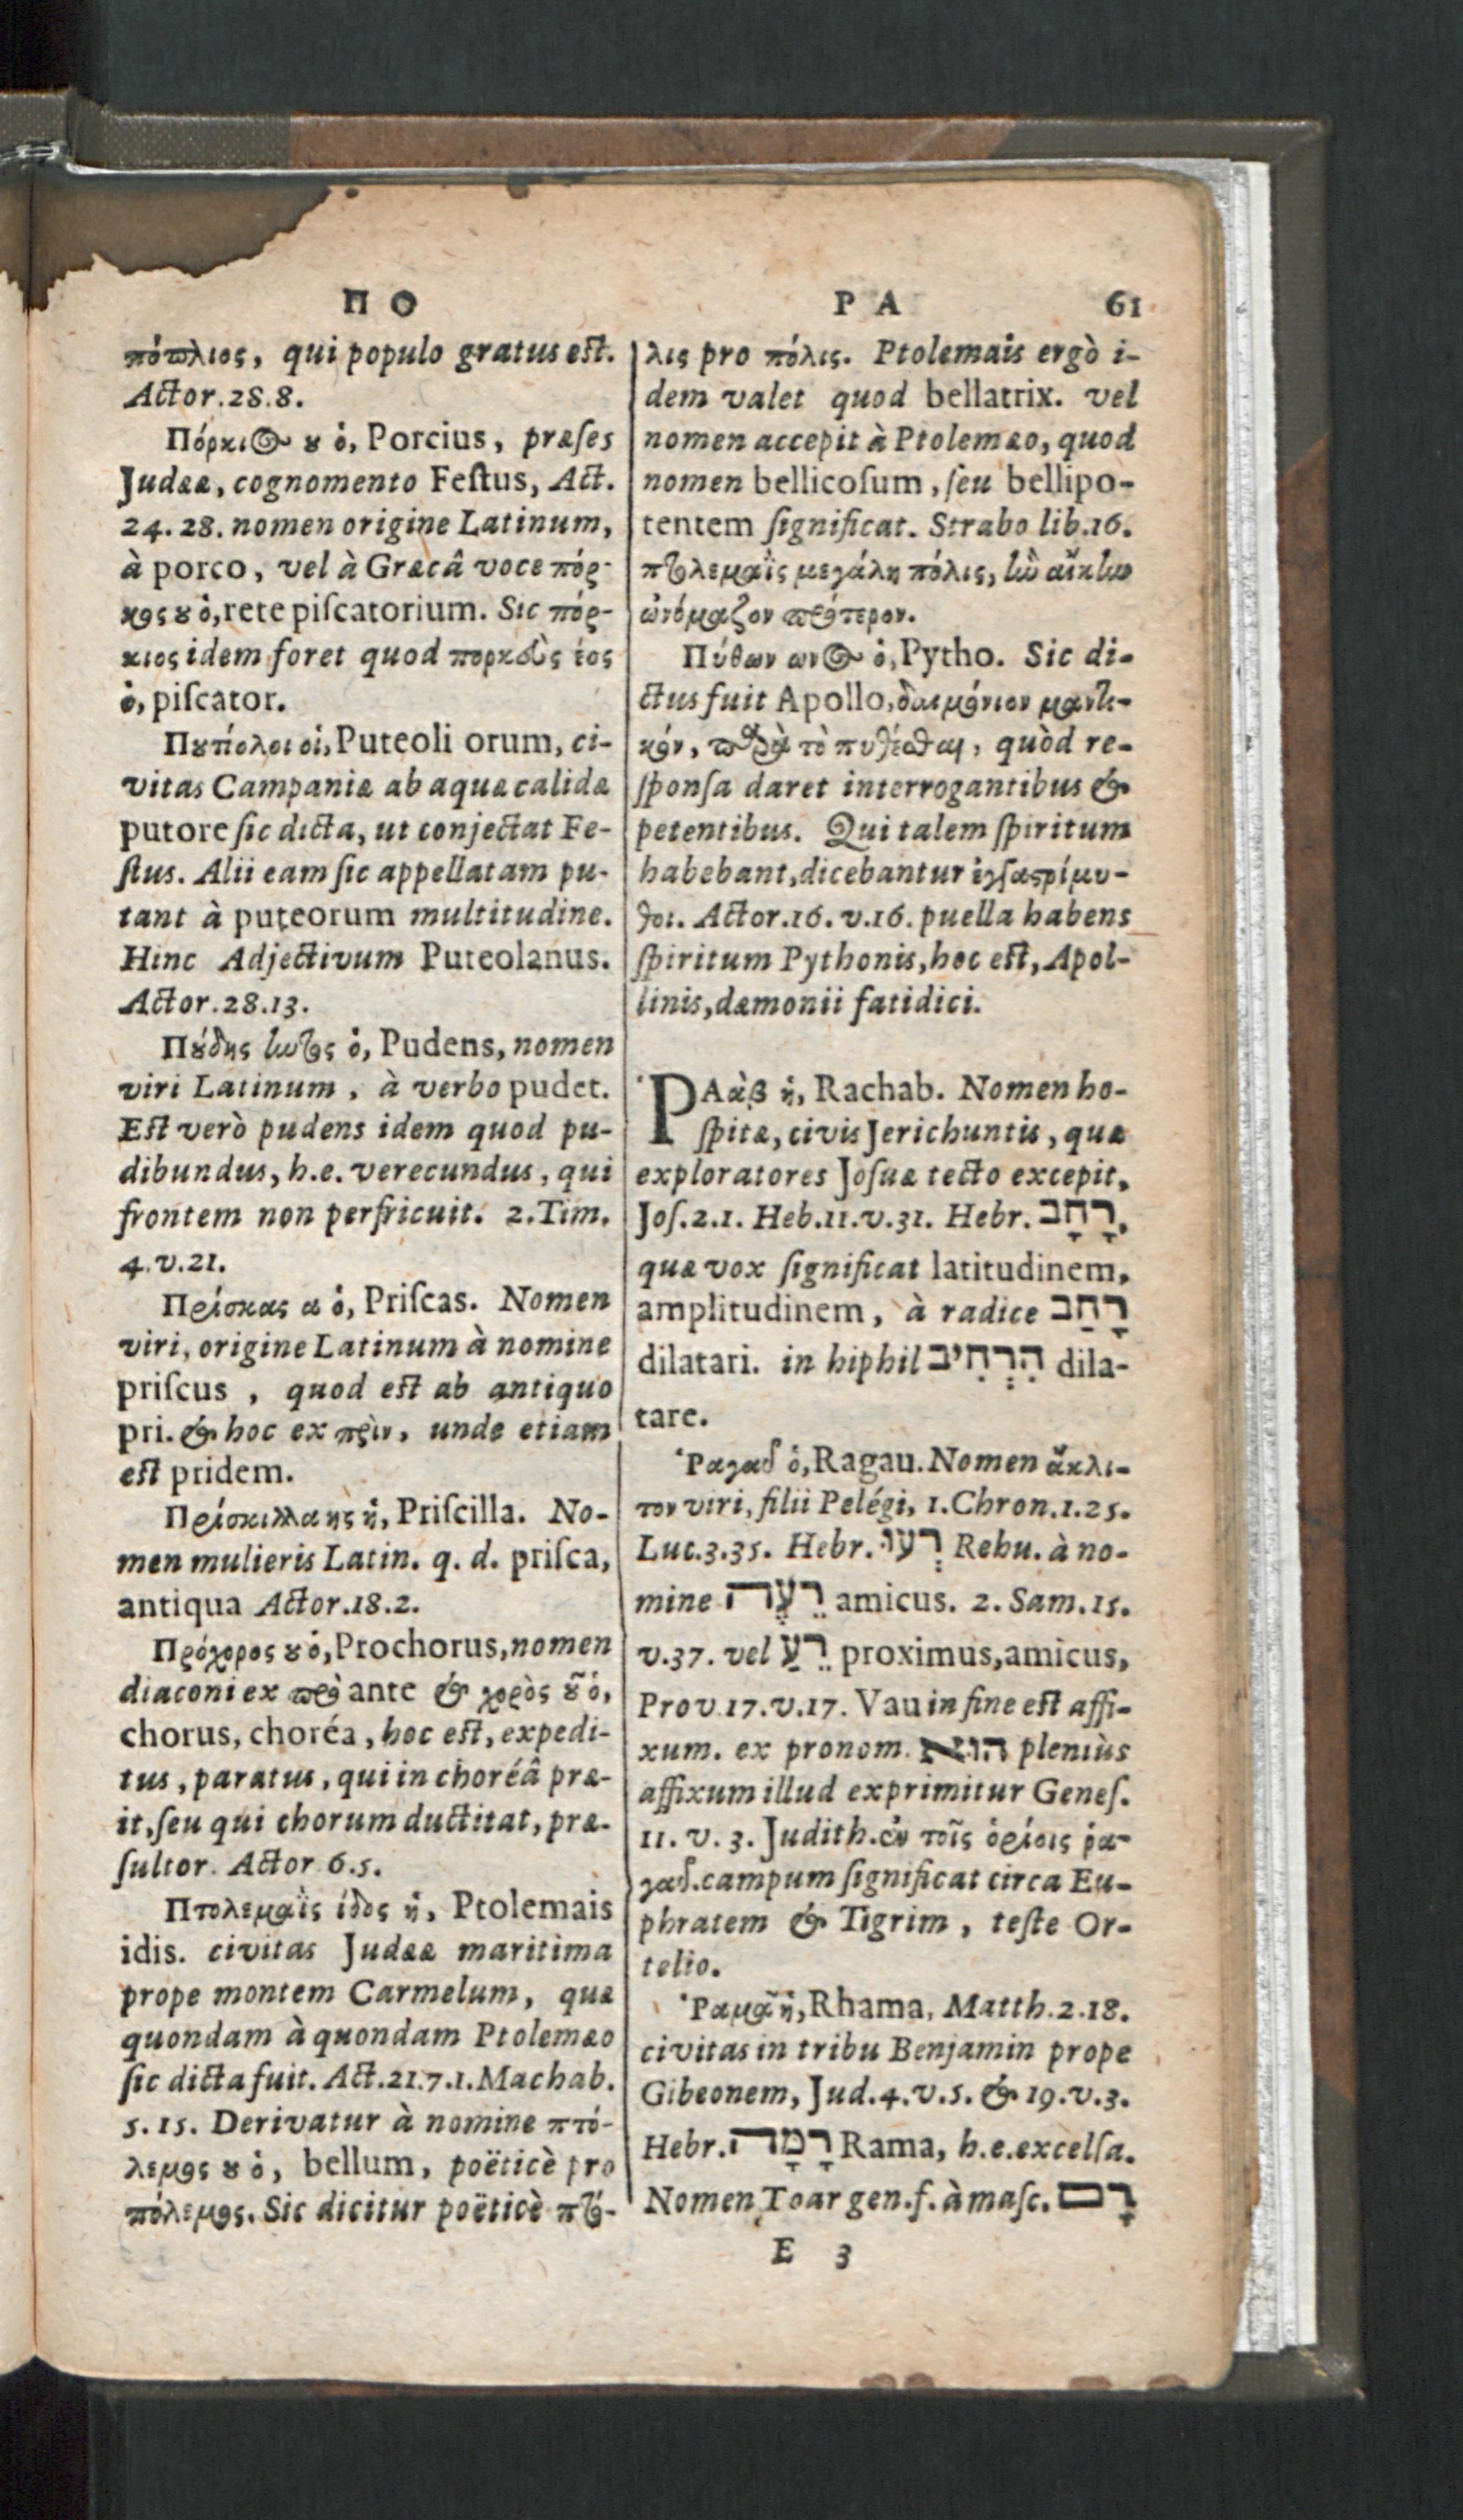 Π Ο
πόπλιος, qui populo gratus est.
Actor.28.8.
Πόρκι⊚ ȣ ὁ, Porcius, præſes
Judææ, cognomento Feſtus, Act.
24.28. nomen origine Latinum,
à porco, vel à Græcâ voce πόρ-
κος ȣ ὁ, rete piſcatorium. Sic πόρ-
κιος idem foret quod πορκεὺς έος
ὁ, piſcator.
Πȣτίολοι οἱ, Puteoli orum, ci-
vitas Campaniæ ab aquæ calidæ
putore ſic dicta, ut conjectat Fe-
ſtus. Alii eam ſic appellatam pu-
tant à puteorum multitudine.
Hinc Adjectivum Puteolanus.
Actor.28.13.
Πȣ́δης εντος ὁ, Pudens, nomen
viri Latinum, à verbo pudet.
Eſt verò pudens idem quod pu-
dibundus, h.e. verecundus, qui
frontem non perfricuit. 2.Tim.
4.v.21.
Πρίσκας α ὁ, Priſcas. Nomen
viri, origine Latinum à nomine
priſcus, quod est ab antiquo
pri. & hoc ex πρὶν, unde etiam
est pridem.
Πρίσκιλλα ης ἡ, Priſcilla. No-
men mulieris Latin. q. d. priſca,
antiqua Actor.18.2.
Πρόχορος ȣ ὁ, Prochorus, nomen
diaconi ex πρὸ ante & χορὸς ȣ͂ ὁ,
chorus, choréa, hoc est, expedi-
tus, paratus, qui in choréâ præ-
it, ſeu qui chorum ductitat, præ-
ſultor. Actor 6.5.
Πτολεμαῒς ίδος ἡ, Ptolemais
idis. civitas Judææ maritima
prope montem Carmelum, quæ
quondam à quondam Ptolemæo
ſic dicta fuit. Act.21.7.1.Machab.
5.15. Derivatur à nomine πτό-
λεμος ȣ ὁ, bellum, poëticè pro
πόλεμος. Sic dicitur poëticè πτό-
Ρ Α 61
λις pro πόλις. Ptolemais ergò i-
dem valet quod bellatrix. vel
nomen accepit à Ptolemæo, quod
nomen bellicoſum, ſeu bellipo-
tentem ſignificat. Strabo lib.16.
πτολεμαῒς μεγάλη πόλις, ἣν ἄκην
ὠνόμαζον πρότερον.
Πύθων ων⊚ ὁ, Pytho. Sic di-
ctus fuit Apollo, δαιμόνιον μαντι-
κόν, παρὰ τὸ πυθέσθαι, quòd re-
ſponſa daret interrogantibus &
petentibus. Qui talem ſpiritum
habebant, dicebantur ἐγγαστρίμυ-
θοι. Actor.16.v.16. puella habens
ſpiritum Pythonis, hoc est, Apol-
linis, dæmonii fatidici.
ῬΑὰβ ἡ, Rachab. Nomen ho-
ſpitæ, civis Jerichuntis, quæ
exploratores Joſuæ tecto excepit,
Joſ.2.1. Heb.11.v.31. Hebr. רָחָב,
quæ vox ſignificat latitudinem,
amplitudinem, à radice רָחַב
dilatari. in hiphil הִרְחִיב dila-
tare.
Ῥαγαῦ ὁ, Ragau. Nomen ἄκλι-
τον viri, filii Pelégi, 1.Chron.1.25.
Luc.3.35. Hebr. רְעוּ Rehu. à no-
mine רֵעֶה amicus. 2. Sam.15.
v.37. vel רֵעַ proximus, amicus,
Prov 17.v.17. Vau in fine est affi-
xum. ex pronom. הוּא pleniùs
affixum illud exprimitur Geneſ.
11. v. 3. Judith. ἐν τοῖς ὁρίοις ῥα-
γαῦ. campum ſignificat circa Eu-
phratem & Tigrim, teſte Or-
telio.
Ῥαμᾶ ἡ, Rhama, Matth.2.18.
civitas in tribu Benjamin prope
Gibeonem, Jud.4.v.5. & 19.v.3.
Hebr. רָמָה Rama, h.e. excelſa.
Nomen Toar gen.f. à maſc. רָם
E 3